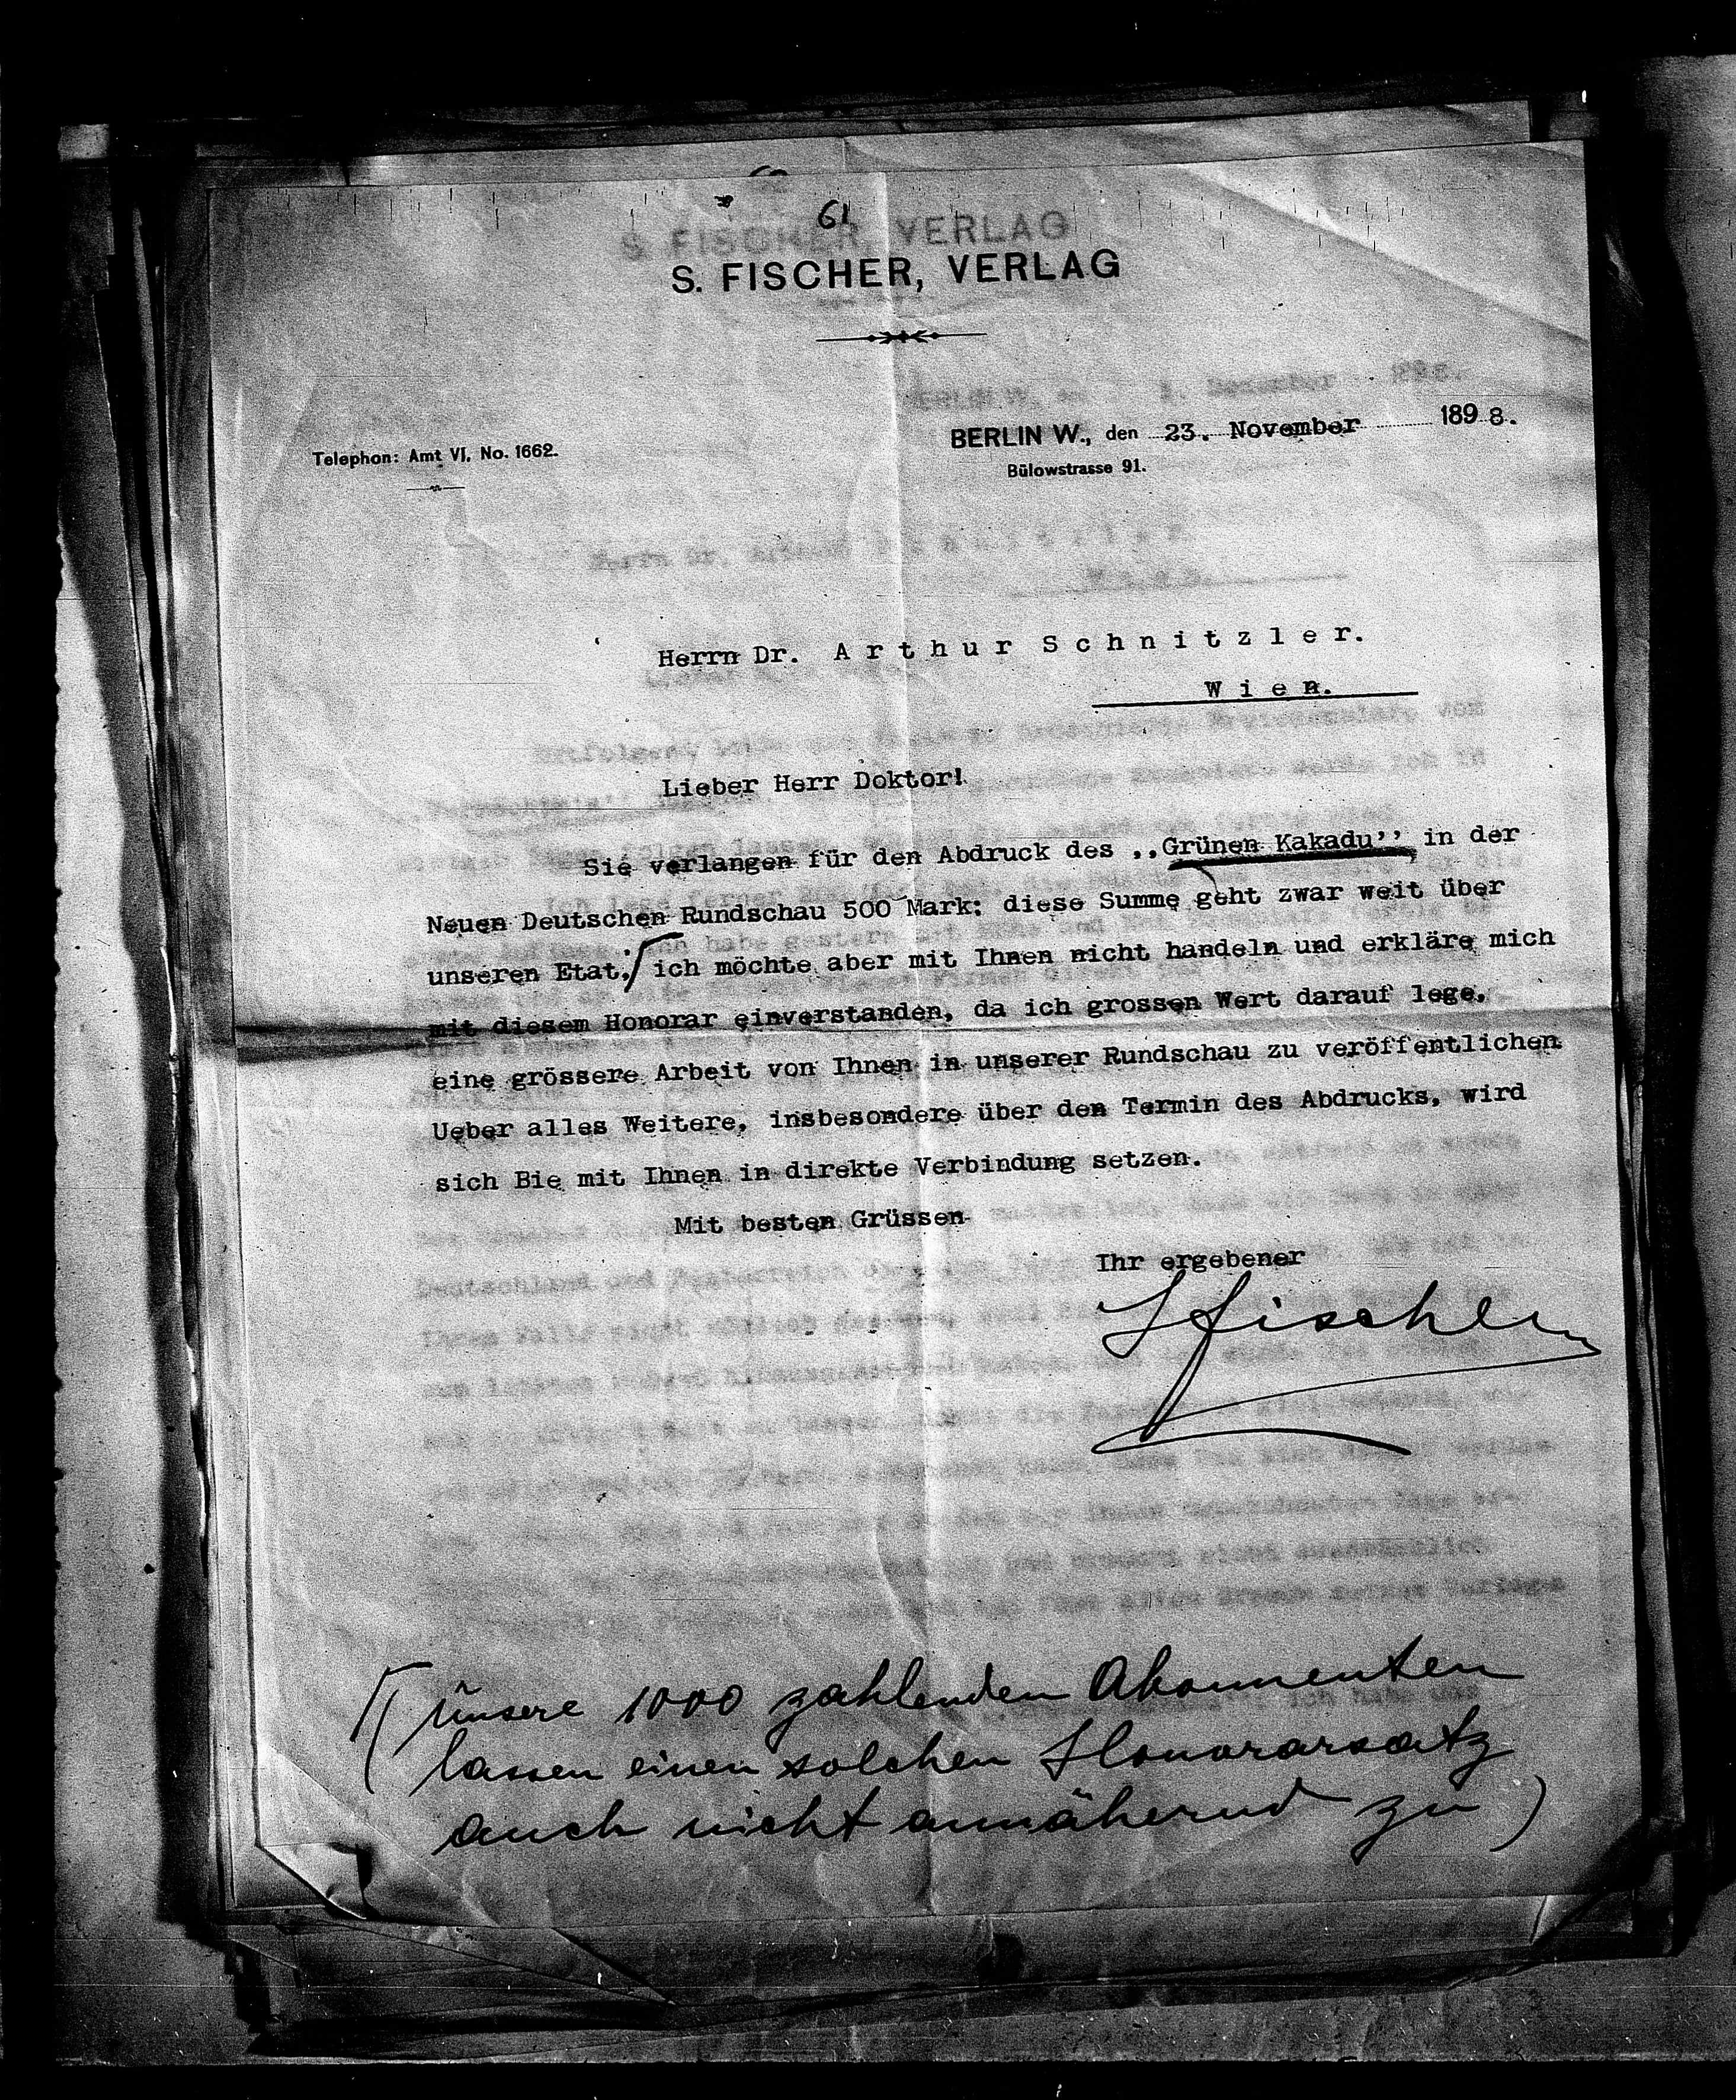 61
S. FISCHER, VERLAG
S. FISCHER, VERLAG
BERLIN W., den 23. November 1898.
Telephon: Amt VI, No. 1662.
Bülowstrasse 91.
Herrn Dr. Arthur Schnitzler.
Wien.
Lieber Herr Doktor!
Sie verlangen für den Abdruck des ,,Grünen Kakadu’’ in der
Neuen Deutschen Rundschau 500 Mark; diese Summe geht zwar weit über
unseren Etat; ich möchte aber mit Ihnen nicht handeln und erkläre mich
mit diesem Honorar einverstanden, da ich grossen Wert darauf lege,
eine grössere Arbeit von Ihnen in unserer Rundschau zu veröffentlichen
Ueber alles Weitere, insbesondere über den Termin des Abdrucks, wird
sich Bie mit Ihnen in direkte Verbindung setzen.
Mit besten Grüssen
Ihr ergebener
SFischer
(Unsere 1000 zahlenden Abonnenten
lassen einen solchen Honorarsatz
auch nicht annähernd zu)